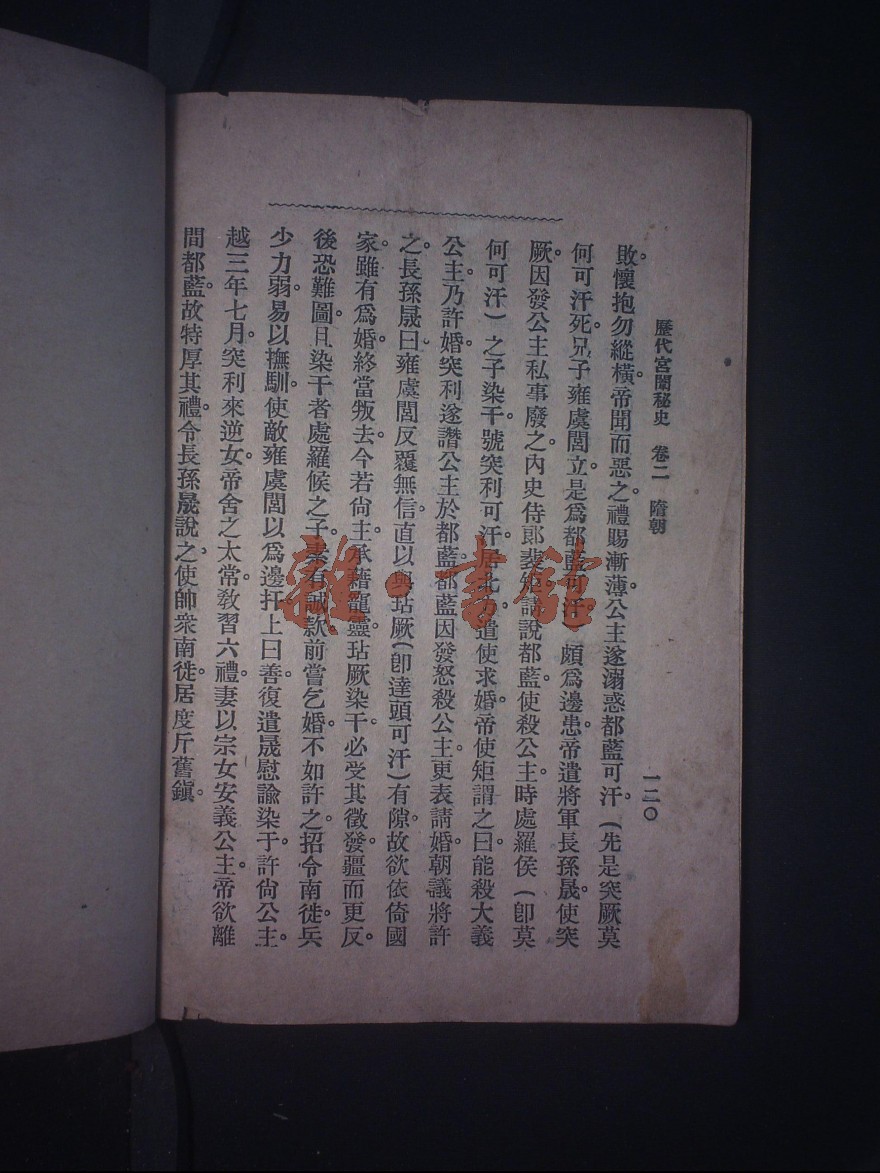 歷代宮闈秘史 卷二 隋朝
一二〇
敗。懷抱勿縱橫。帝聞而惡之。禮賜漸薄。公主遂溺惑都藍可汗。(先是突厥莫
何可汗死。兄子雍虞閭立。是爲都藍可汗)頗爲邊患。帝遣將軍長孫晟。使突
厥。因發公主私事廢之。內史侍郎裴矩請說都藍。使殺公主。時處羅侯(卽莫
何可汗)之子染干。號突利可汗。居北方。遣使求婚。帝使矩謂之曰。能殺大義
公主。乃許婚。突利遂譖公主於都藍。都藍因發怒殺公主。更表請婚。朝議將許
之。長孫晟曰。雍虞閭反覆無信。直以與玷厥(卽達頭可汗)有隙。故欲依倚國
家。雖有爲婚。終當叛去。今若尙主。承藉寵靈。玷厥染干必受其徵發。疆而更反。
後恐難圖。且染干者處羅候之子。素有誠款。前嘗乞婚。不如許之。招令南徙。兵
少力弱。易以撫馴。使敵雍虞閭以爲邊扞。上曰善。復遣晟慰諭染于。許尙公主。
越三年七月。突利來逆女。帝舍之太常。敎習六禮。妻以宗女安義公主。帝欲離
間都藍。故特厚其禮。令長孫晟說之。使帥衆南徙。居度斤舊鎭。
雜·書館